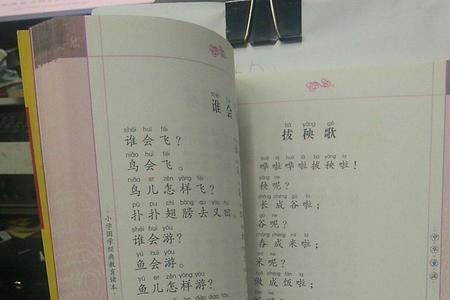 shéi huì
谁会
shéi huì fēi
谁会飞？
niǎo huì fēi
鸟会飞。
niǎo ér zěn yàng fēi
鸟儿怎样飞？
pū pū chì bǎng qù yòu huí
扑扑翅膀去又回。
shéi huì yóu
谁会游？
yú huì yóu
鱼会游。
yú ér zěn yàng yóu
鱼儿怎样游？
小学国学经典教育读本
bá yāng gē
拔秧歌
哗啦哗啦拔秧啦！
秧呢？
长成谷啦；
谷呢？
舂成米啦；
米呢？
做成饭啦；
中华童谣